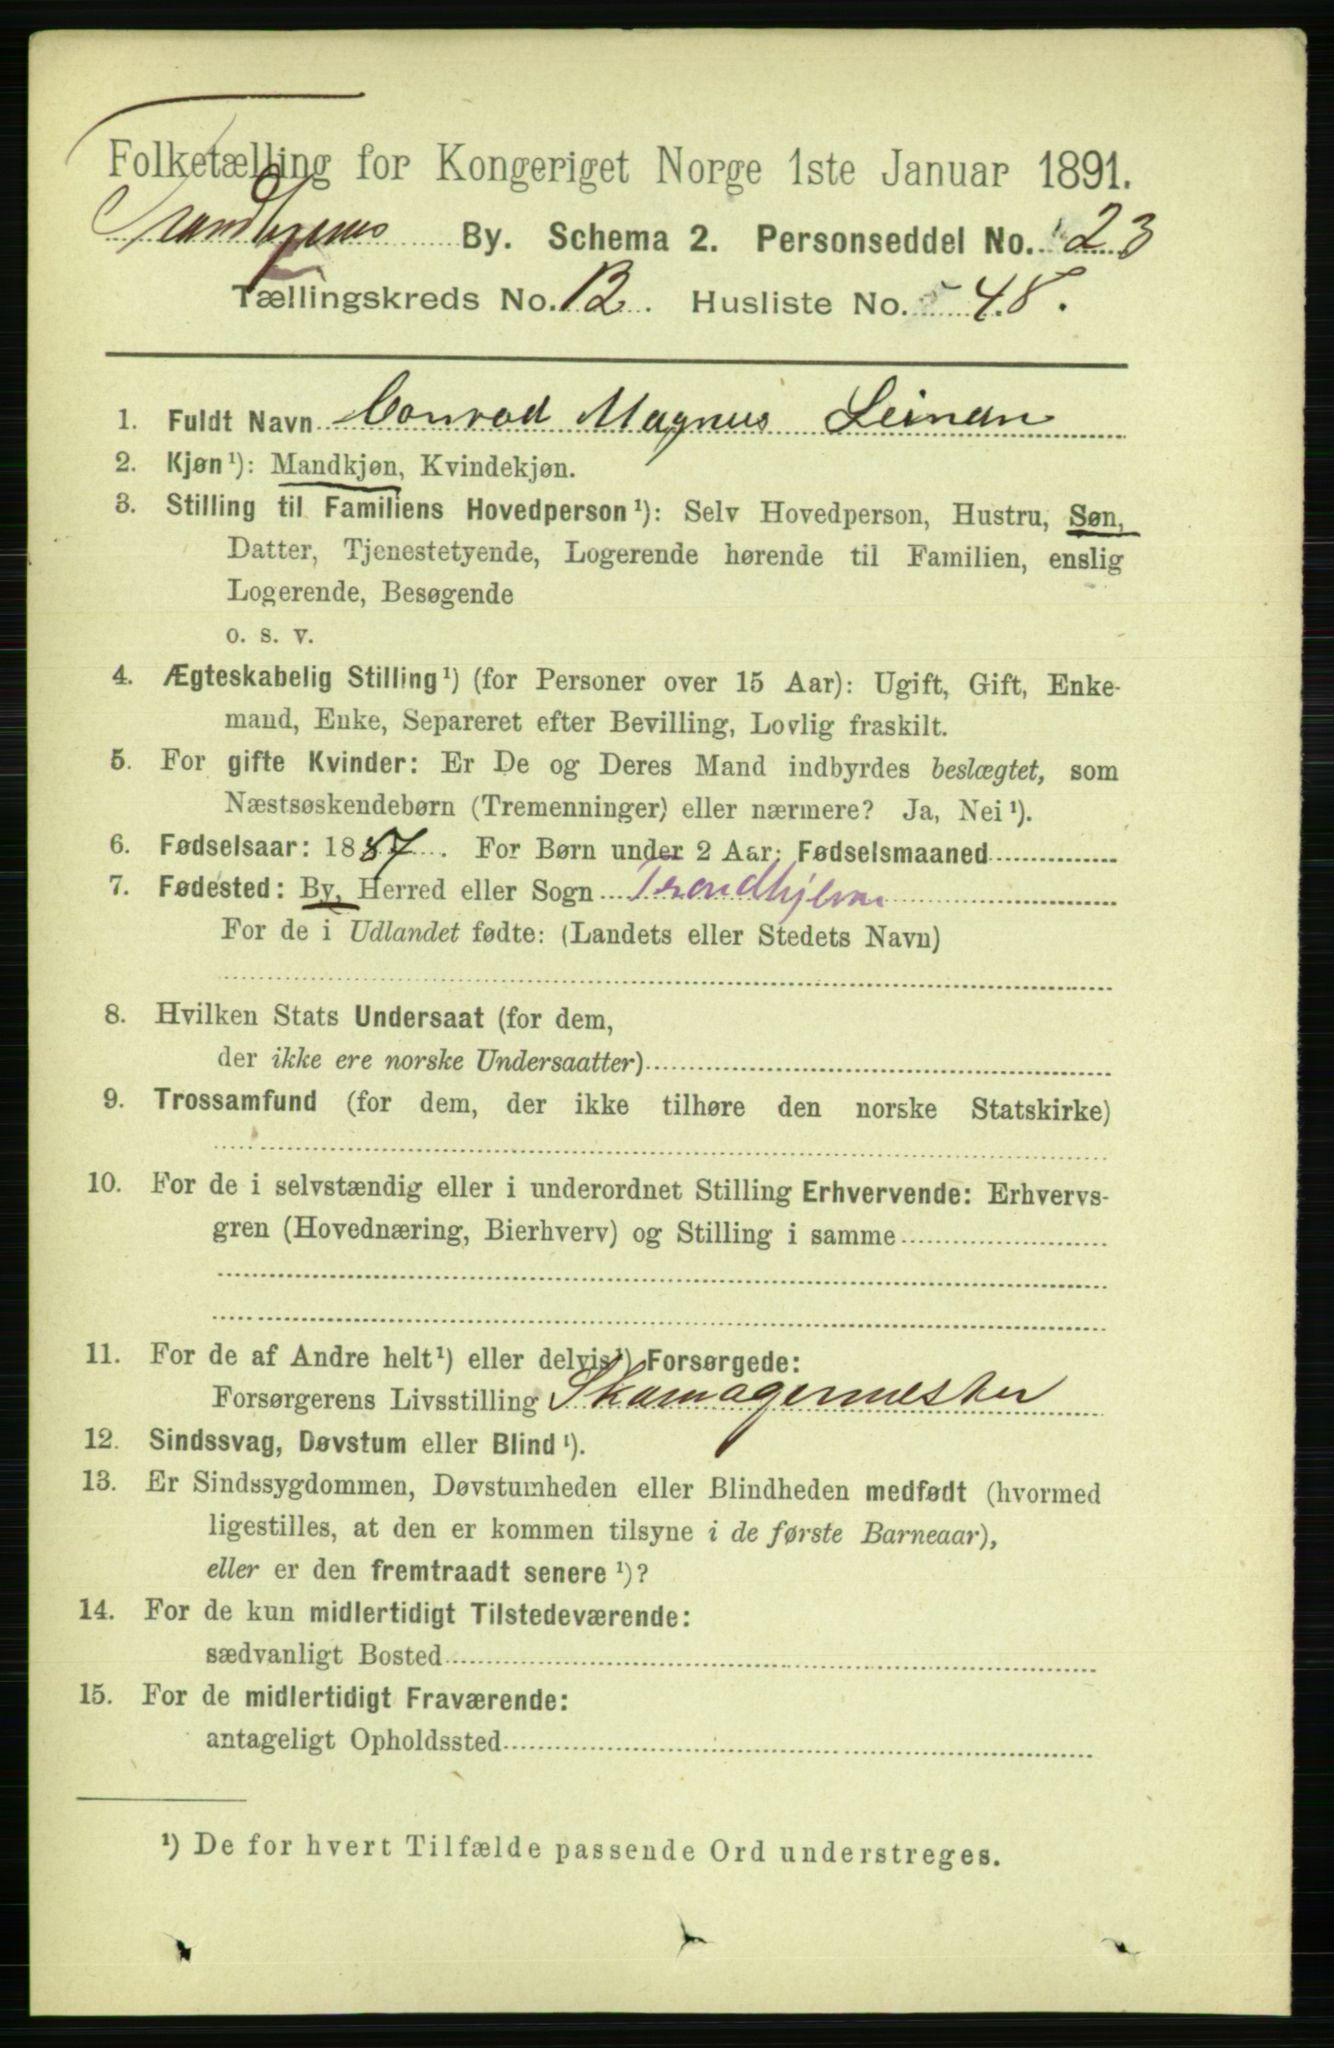 Folketælling for Kongeriget Norge 1ste Januar 1891.
Trondhjems By. Schema 2. Personseddel No. 23
Tællingskreds No. 12. Husliste No. 48.
1. Fuldt Navn Conrad Magnus Leinan
2. Kjøn¹): Mandkjøn, Kvindekjøn.
3. Stilling til Familiens Hovedperson¹): Selv Hovedperson, Hustru, Søn,
Datter, Tjenestetyende, Logerende hørende til Familien, enslig
Logerende, Besøgende
o. s. v.
4. Ægteskabelig Stilling¹) (for Personer over 15 Aar): Ugift, Gift, Enke-
mand, Enke, Separeret efter Bevilling, Lovlig fraskilt.
5. For gifte Kvinder: Er De og Deres Mand indbyrdes beslægtet, som
Næstsøskendebørn (Tremenninger) eller nærmere? Ja, Nei¹).
6. Fødselsaar: 1887. For Børn under 2 Aar: Fødselsmaaned
7. Fødested: By, Herred eller Sogn Trondhjem
For de i Udlandet fødte: (Landets eller Stedets Navn)
8. Hvilken Stats Undersaat (for dem,
der ikke ere norske Undersaatter)
9. Trossamfund (for dem, der ikke tilhøre den norske Statskirke)
10. For de i selvstændig eller i underordnet Stilling Erhvervende: Erhvervs-
gren (Hovednæring, Bierhverv) og Stilling i samme
11. For de af Andre helt¹) eller delvis¹) Forsørgede:
Forsørgerens Livsstilling Skomagermester
12. Sindssvag, Døvstum eller Blind¹).
13. Er Sindssygdommen, Døvstumheden eller Blindheden medfødt (hvormed
ligestilles, at den er kommen tilsyne i de første Barneaar),
eller er den fremtraadt senere¹)?
14. For de kun midlertidigt Tilstedeværende:
sædvanligt Bosted
15. For de midlertidigt Fraværende:
antageligt Opholdssted
¹) De for hvert Tilfælde passende Ord understreges.